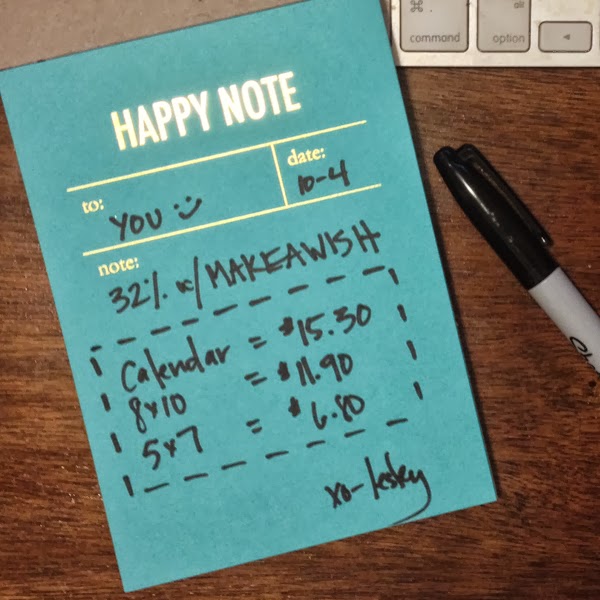 command
option
HAPPY NOTE
to: YOU :)
date: 10-4
note:
32% w/ MAKEAWISH
Calendar = $15.30
8x10 = $11.90
5x7 = $6.80
xo- lesley